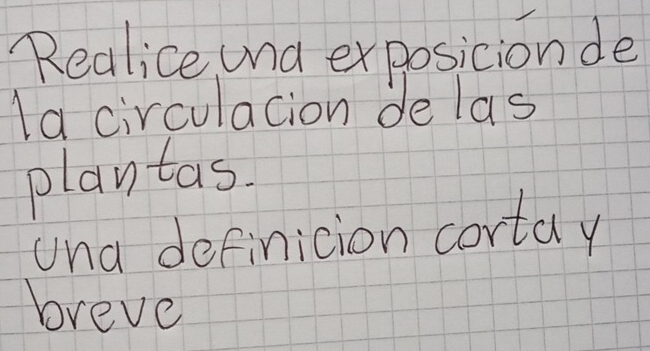 Realice una exposición de
la circulacion de las
plantas.
una definicion corta y
breve